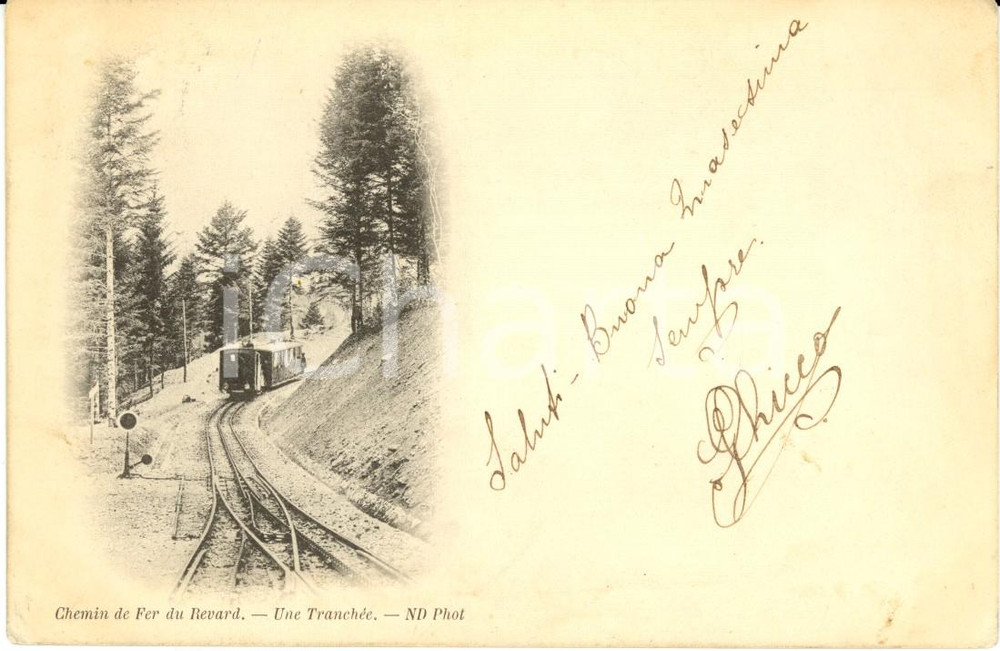 Saluti - Buona
sempre.
Chicco
iCharta
Chemin de Fer du Revard. — Une Tranchée. — ND Phot